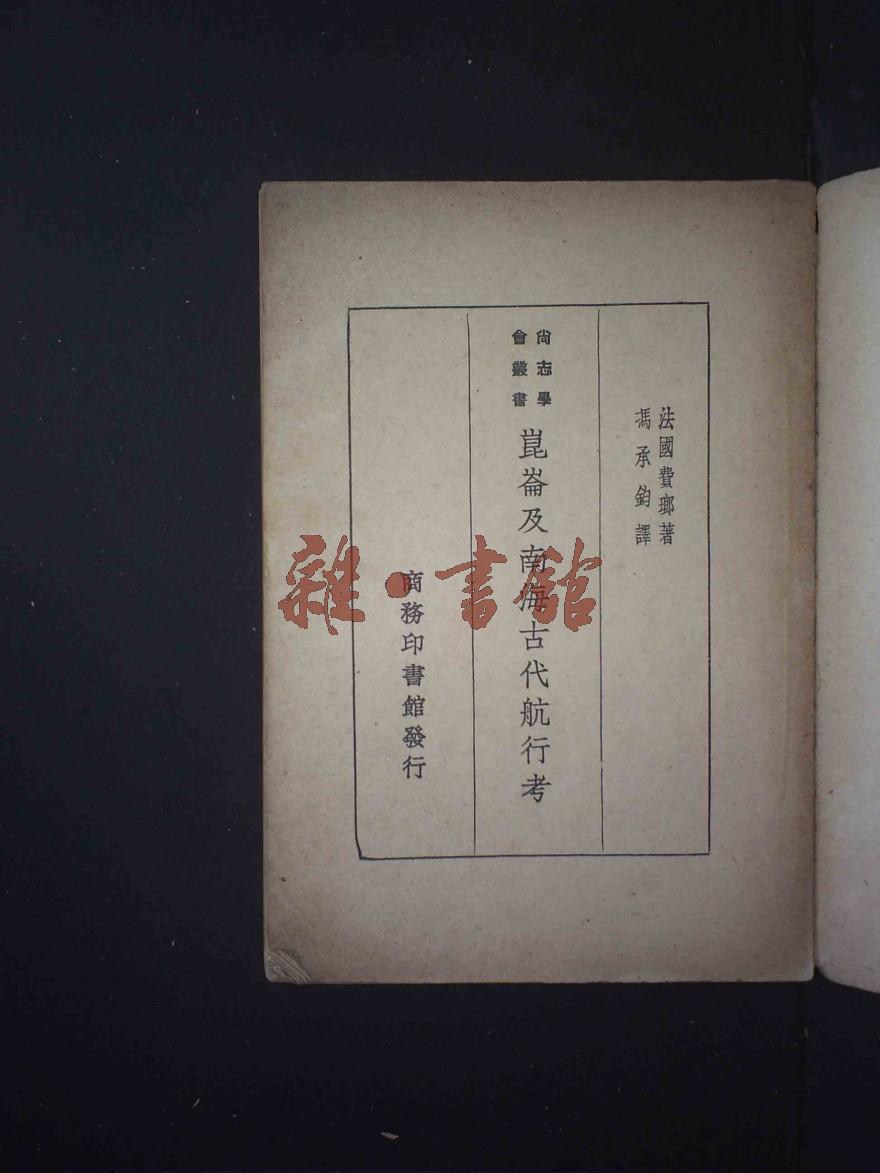 法國費瑯著
馮承鈞譯
尙志學
會叢書
崑崙及南海古代航行考
商務印書館發行
雜·書館